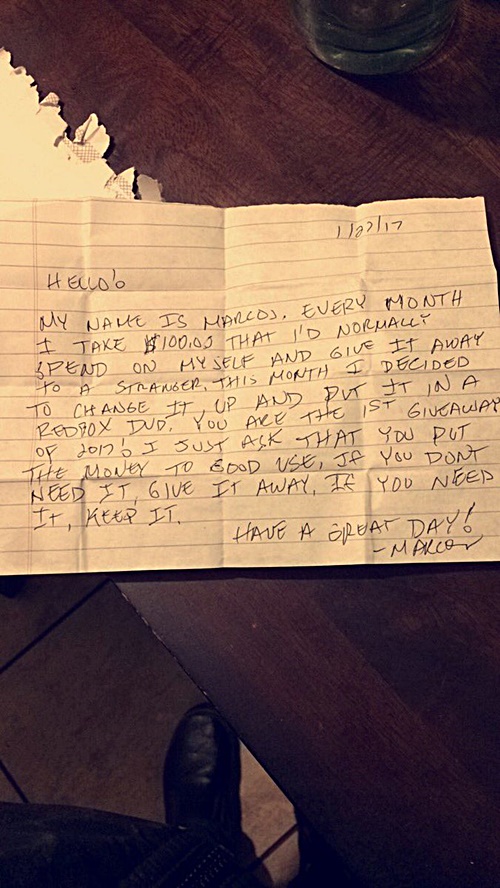 1/27/17
HELLO!
MY NAME IS MARCOS. EVERY MONTH
I TAKE $100.00 THAT I'D NORMALLY
SPEND ON MYSELF AND GIVE IT AWAY
TO A STRANGER. THIS MONTH I DECIDED
TO CHANGE IT UP AND PUT IT IN A
REDBOX DVD. YOU ARE THE 1ST GIVEAWAY
OF 2017! I JUST ASK THAT YOU PUT
THE MONEY TO GOOD USE, IF YOU DONT
NEED IT, GIVE IT AWAY. IF YOU NEED
IT, KEEP IT.
HAVE A GREAT DAY!
-MARCOS